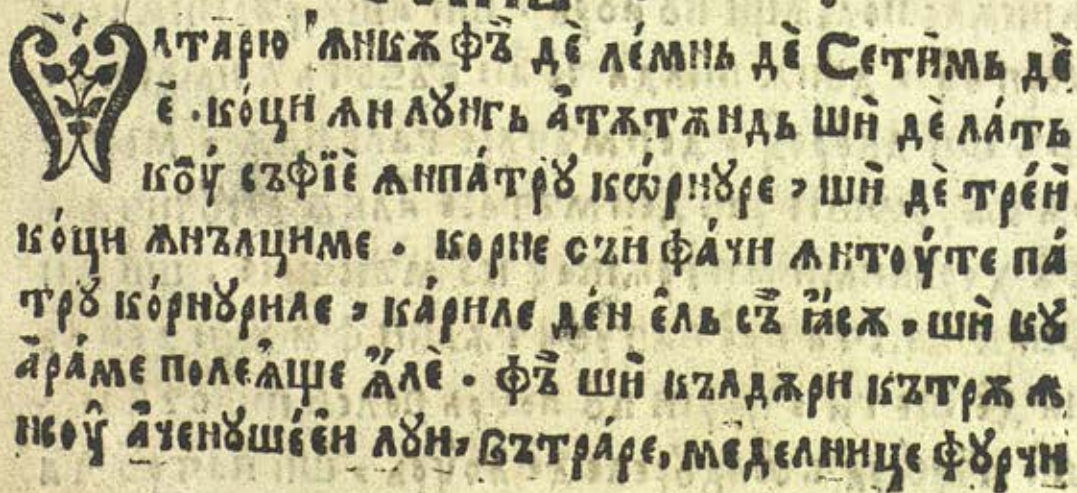 Ѡлтарю ꙟнкѫ фъ̀ дѐ ле́мнь дѐ Сети́мь дѐ
є҃ . ко́ци ѫн лꙋнгь а҆тѫтѫндь шѝ дѐ ла́ть
коу́ съфїѐ ѫнпа́трꙋ кѡ́рнꙋре , шѝ дѐ тре́й
ко́ци ѫнълциме . корне сън фа́чи ѫнтоу́те па́
трꙋ ко́рнꙋриле , ка́риле де́н е́ль съ̀ ꙗ́сѫ , шѝ кꙋ
а҆ра́ме полеѧ́ще ѫ҆лѐ . фъ̀ шѝ кълдѫри кътрѫ ѫ
нсоу̑ а҆ченꙋше́ей лꙋи, вътра́ре, меделнице фꙋрчи